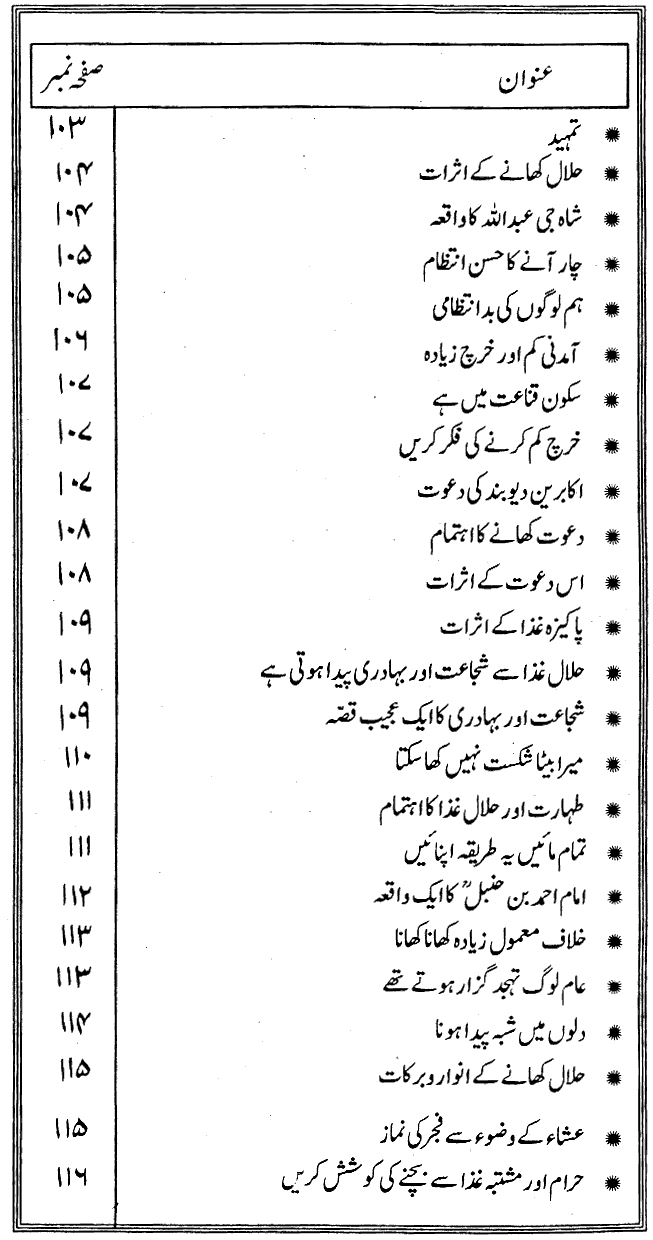 عنوان صفحہ نمبر
تمہید ۱۰۳
حلال کھانے کے اثرات ۱۰۴
شاہ جی عبداللہ کا واقعہ ۱۰۴
چار آنے کا حسن انتظام ۱۰۵
ہم لوگوں کی بد انتظامی ۱۰۵
آمدنی کم اور خرچ زیادہ ۱۰۶
سکون قناعت میں ہے ۱۰۷
خرچ کم کرنے کی فکر کریں ۱۰۷
اکابرین دیوبند کی دعوت ۱۰۷
دعوت کھانے کا اہتمام ۱۰۸
اس دعوت کے اثرات ۱۰۸
پاکیزہ غذا کے اثرات ۱۰۹
حلال غذا سے شجاعت اور بہادری پیدا ہوتی ہے ۱۰۹
شجاعت اور بہادری کا ایک عجیب قصّہ ۱۰۹
میرا بیٹا شکست نہیں کھا سکتا ۱۱۰
طہارت اور حلال غذا کا اہتمام ۱۱۱
تمام مائیں یہ طریقہ اپنائیں ۱۱۱
امام احمد بن حنبلؒ کا ایک واقعہ ۱۱۲
خلاف معمول زیادہ کھانا کھانا ۱۱۳
عام لوگ تہجد گزار ہوتے تھے ۱۱۳
دلوں میں شبہ پیدا ہونا ۱۱۴
حلال کھانے کے انوار و برکات ۱۱۵
عشاء کے وضوء سے فجر کی نماز ۱۱۵
حرام اور مشتبہ غذا سے بچنے کی کوشش کریں ۱۱۶